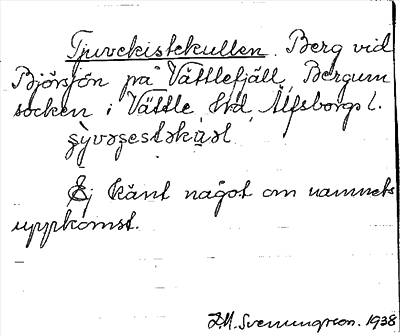 Tjuvekistekullen. Berg vid
Björsjön på Vättlefjäll, Bergum
socken i Vättle hd, Älfsborgs l.
Ej känt något om namnets
uppkomst.
D.M. Svenungsson. 1938